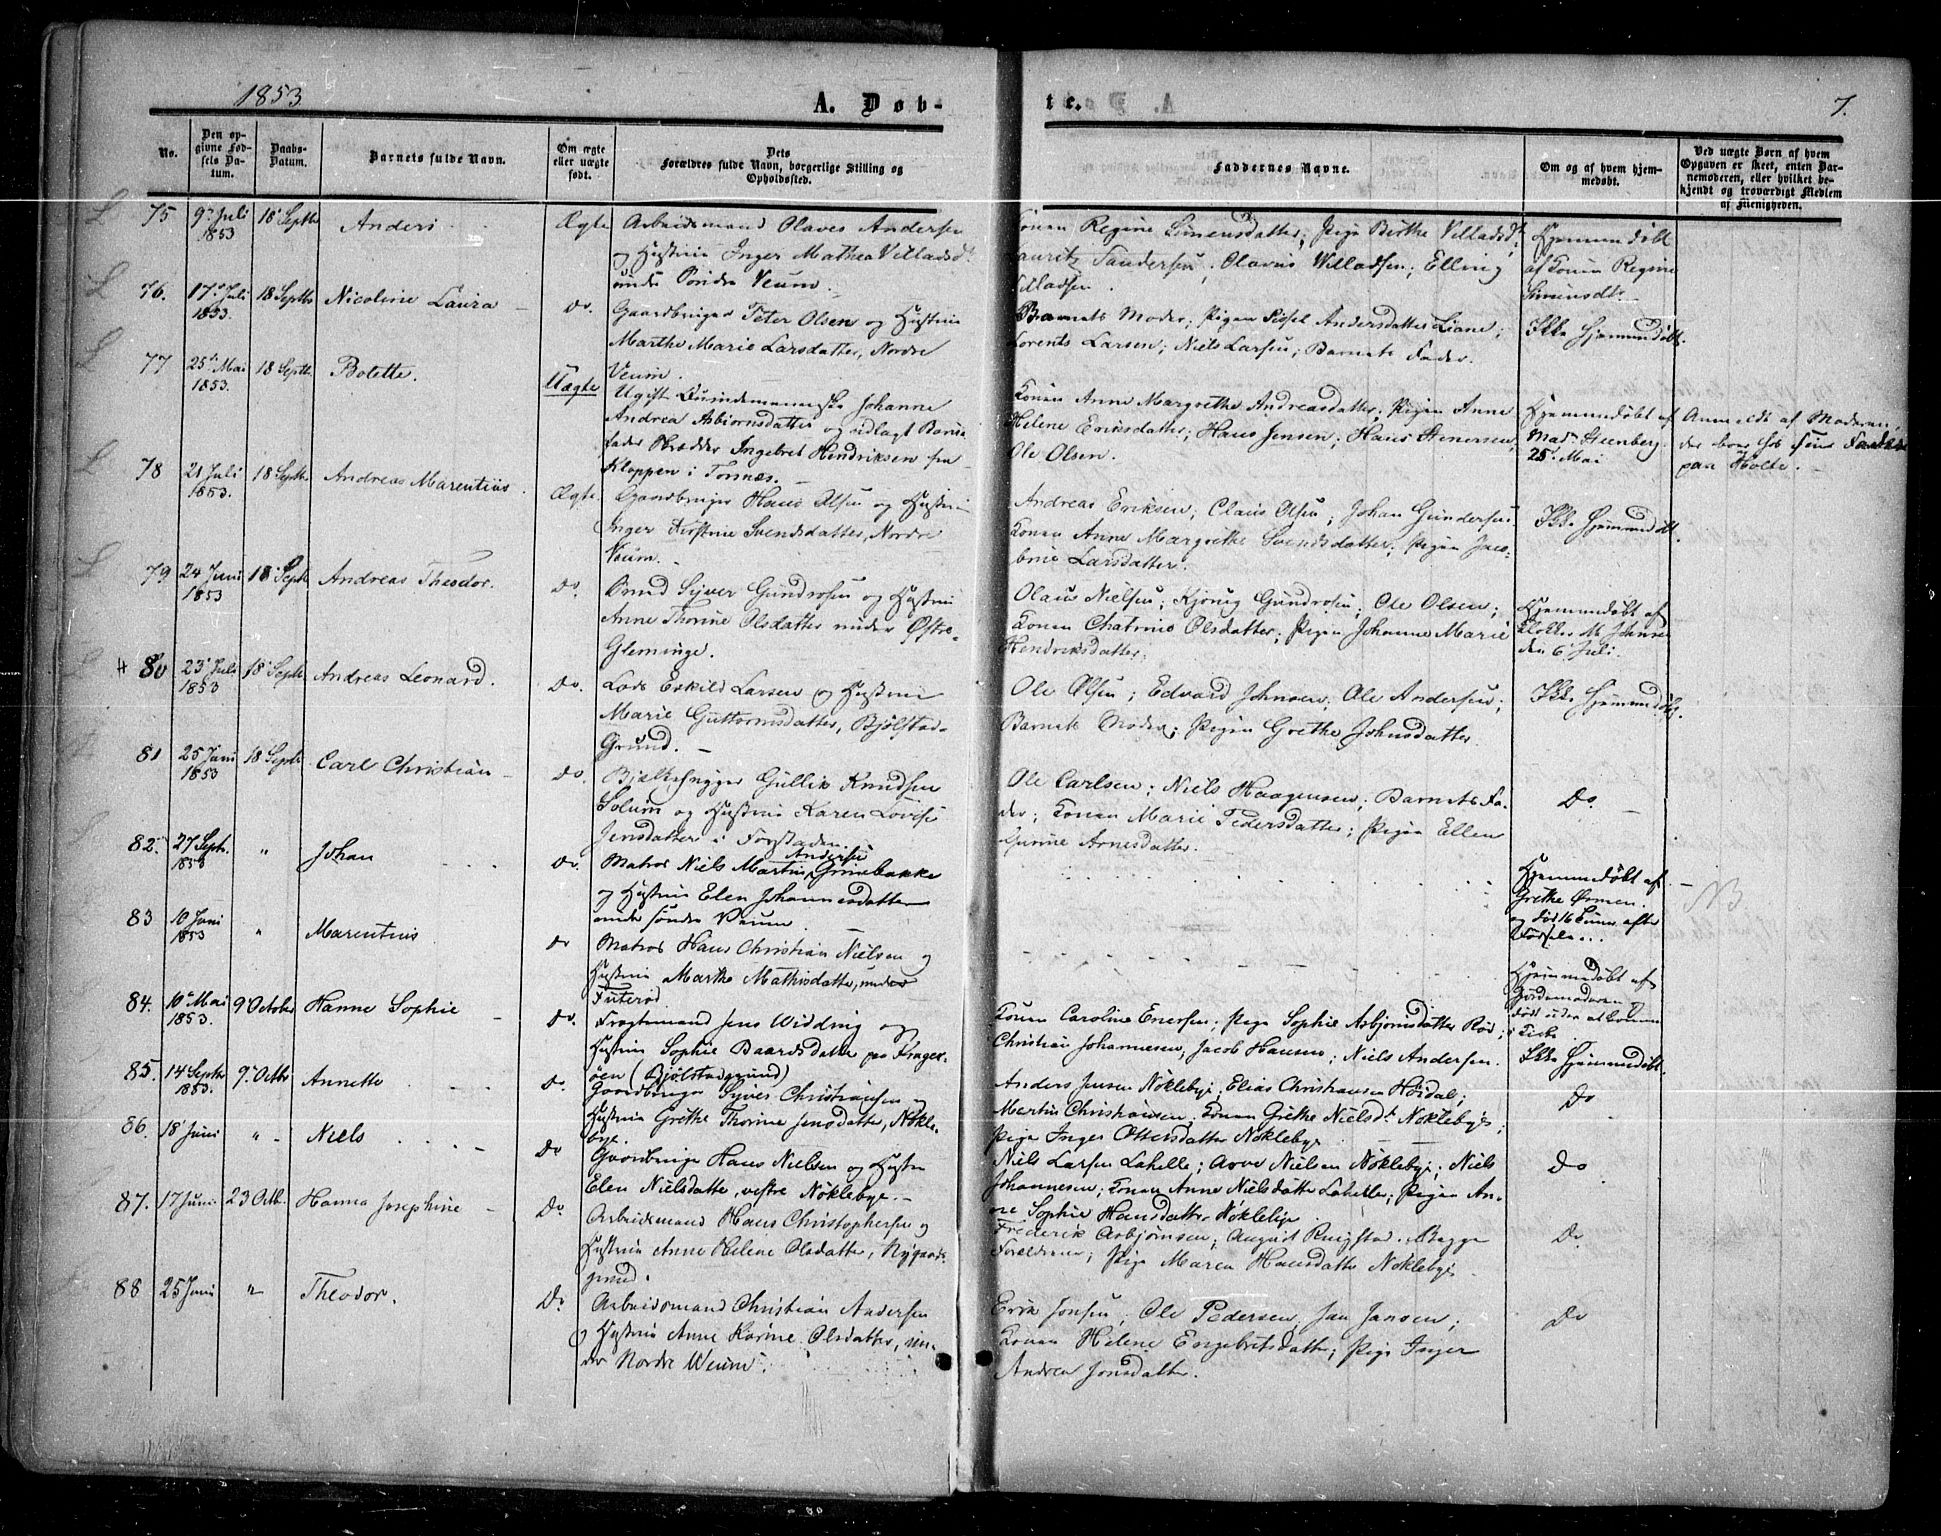 1853
A. Døb-
te.
7.
No.
Den op-
givne Fød-
sels Da-
tum.
Daabs-
Datum.
Barnets fulde Navn.
Om ægte
eller uægte
født.
Dets
Forældres fulde Navn, borgerlige Stilling og
Opholdssted.
Faddernes Navne.
Om og af hvem hjem-
medøbt.
Ved uægte Børn af hvem
Opgaven er skeet, enten Bar-
nemoderen, eller hvilket be-
kjendt og troværdigt Medlem
af Menigheden.
75 9de Juli 1853 18 Septbr Anders Ægte
Arbeidsmand Olaves Andersen
og Hustrue Inger Mathea Villadsdt.
under Søndre Veum.
Konen Regine Simensdatter; Pige Birthe Villadsdt.
Lauritz Sandersen; Olavus Willadsen; Elling
Villadsen.
Hjemmedøbt
af Konen Regine
Simensdt.
76. 17de Juli 1853. 18 Septbr Nicoline Laura Do.
Gaardbruger Peter Olsen og Hustrue
Marthe Marie Larsdatter, Nordre
Veum.
Barnets Moder; Pigen Sissel Andersdatter Liane;
Lorents Larsen; Niels Larsen; Barnets Fader.
Ikke Hjemmedøbt.
77 25de Mai 1853. 18 Septbr. Bolette. Uægte
Ugift Quindemenneske Johanne
Andrea Asbiørnsdatter og udlagt Barne-
fader Skrædder Ingebret Hendriksen fra
Kloppen i Tornæs.
Konen Anne Margrethe Andreasdatter; Pigen Anne
Helene Eriksdatter; Hans Jensen; Hans Stenersen;
Ole Olsen.
Hjemmedøbt af
Mad. Steenberg
25. Mai
Anmeldt af Moderen,
der boer hos sine Forældre
paa Holte.
78 21 Juli 1853. 18 Septbr. Andreas Marentius. Ægte.
Gaardbruger Hans Olsen og Hustrue
Inger Kirstine Svendsdatter, Nordre
Veum.
Andreas Eriksen; Claus Olsen; Johan Gundersen
Konen Anne Margrethe Svendsdatter; Pigen Jaco-
bine Larsdatter.
Ikke Hjemmedøbt.
79 24 Juni 1853 18 Septr Andreas Theodor. Do.
Ørnud Syver Gundrosen og Hustrue
Anne Thorine Olsdatter under Østre
Gleminge.
Olaus Nielsen; Kjønig Gundrosen; Ole Olsen;
Konen Chatrine Olsdatter; Pigen Johanne Marie
Hendriksdatter;
Hjemmedøbt af
Klokker M. Johnsen
den 6 Juli.
80 23 Juli 1853 18 Septr. Andreas Leonard. Do.
Lods Eskild Larsen og Hustrue
Marie Guttormsdatter, Bjølstad-
Grund.
Ole Olsen; Edvard Johnsen; Ole Andersen;
Barnets Moder; Pigen Grethe Johnsdatter
Ikke Hjemmedøbt.
81 25 Juni 1853 18 Septr Carl Christian Do.
Bjelkehugger Gullik Knudsen
Solum og Hustrue Karen Lovise
Jensdatter i Forstaden.
Ole Carlsen; Niels Haagensen; Barnets Fa-
der; Konen Marie Pedersdatter; Pigen Ellen
Gurine Arnesdatter.
Do.
82. 27 Septr. 1853 " Johan Do.
Andersen
Matros Niels Martin Grinebakke
og Hustrue Elen Johannesdatter
under søndre Veum
Hjemmedøbt af
Grethe Osmen.
og død 16 Timer efter
Fødselen...
NB.
83 10 Juni 1853 " Marentius Do
Matros Hans Christian Nielsen og
Hustrue Marthe Mathisdatter, under
Futerød
Hjemmedøbt af
Jordemoderen og
død uden at komme
i Kirke.
84. 10de Mai 1853. 9 October Hanne Sophie Do.
Fragtemand Jens Widding og
Hustrue Sophie Baardsdatter paa Krager-
øen (Bjølstadgrund)
Konen Caroline Enersen; Pige Sophie Asbjørnsdatter Rød;
Christian Johannesen; Jacob Hansen; Niels Andersen.
Ikke Hjemmedøbt.
85. 14 Septbr 1853. 9. Octbr Annette Do.
Gaardbruger Syver Christiansen
Hustrue Grethe Thorine Jensdatter, Nøkle-
bye.
Anders Jensen Nøklebye; Elias Christiansen Hørdal;
Martin Christiansen; Konen Grethe Nielsdt. Nøklebye;
Pige Inger Ottersdatter Nøklebye
Do
86. 18 Juni " Niels Do
Gaardbruger Hans Nielsen og Hustrue
Elen Nielsdatter, vestre Nøklebye.
Niels Larsen Lahelle; Arve Nielsen Nøklebye; Niels
Johannesen; Konen Anne Nielsdatter Lahelle; Pigen An-
ne Sophie Hansdatter Nøklebye
Do
87. 17 Juni 23 Octbr. Hanna Josephine Do.
Arbeidsmand Hans Christophersen og
Hustrue Anne Helene Olsdatter, Nygaards-
grund.
Frederik Asbjørnsen; August Ringstad. Begge
Forældrene; Pige Maren Hansdatter Nøklebye
Do.
88 25 Juni " Theodor. Do
Arbeidsmand Christian Andersen
og Hustrue Anne Karine Olsdatter, un-
der Nordre Weum.
Erik Jonsen; Ole Pedersen, Jan Jansen;
Konen Helene Engebretsdatter; Pige Inger
Andrea Jonsdatter.
Do